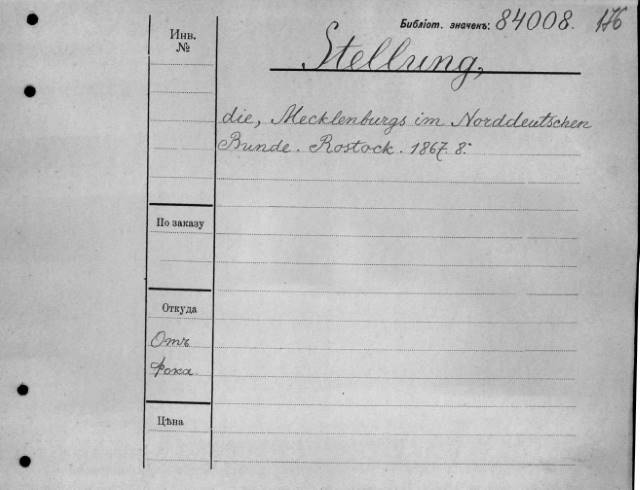 Библіот. значекъ: 84008. 176
Инв.
№
Stellung,
die, Mecklenburgs im Norddeutschen
Bunde. Rostock. 1867. 8.°
По заказу
Откуда
Отъ
Фока
Цѣна